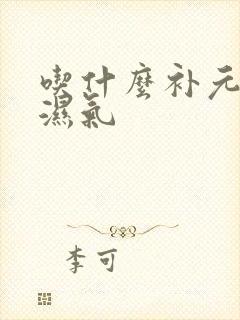 喫什麼补元
濕氣
李可